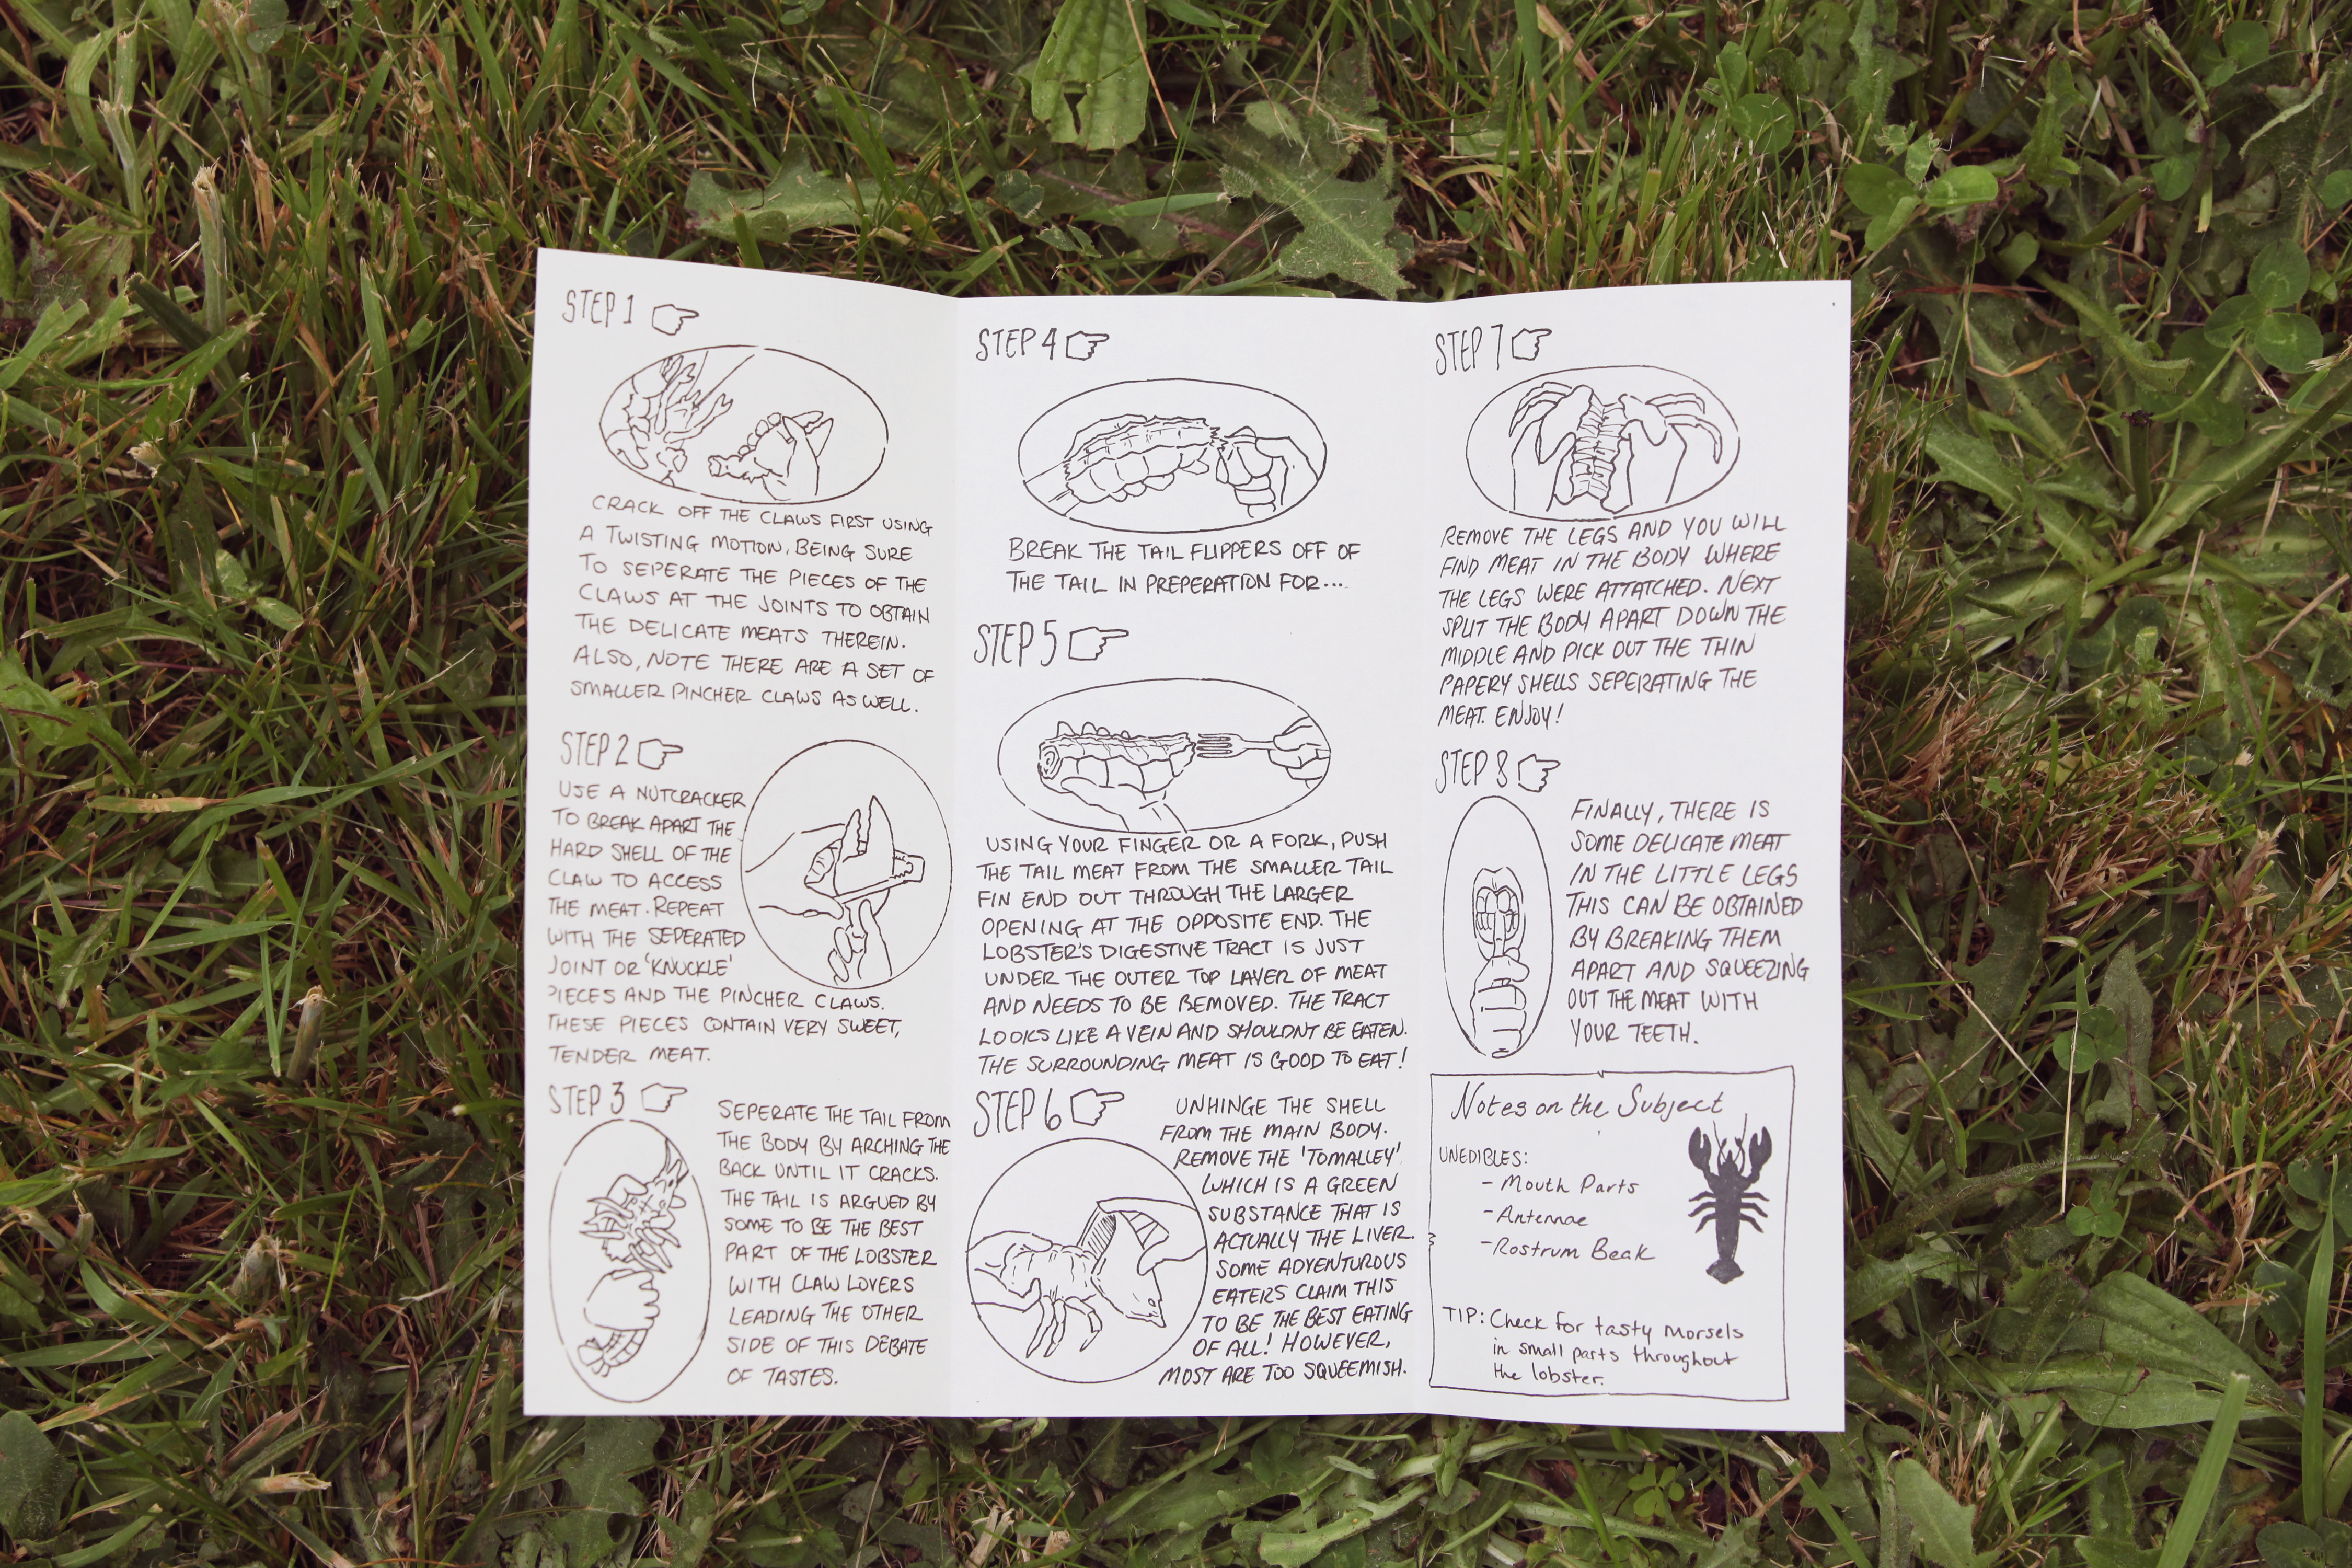 STEP 1
CRACK OFF THE CLAWS FIRST USING
A TWISTING MOTION, BEING SURE
TO SEPERATE THE PIECES OF THE
CLAWS AT THE JOINTS TO OBTAIN
THE DELICATE MEATS THEREIN.
ALSO, NOTE THERE ARE A SET OF
SMALLER PINCHER CLAWS AS WELL.
STEP 2
USE A NUTCRACKER
TO BREAK APART THE
HARD SHELL OF THE
CLAW TO ACCESS
THE MEAT. REPEAT
WITH THE SEPERATED
JOINT OR 'KNUCKLE'
PIECES AND THE PINCHER CLAWS.
THESE PIECES CONTAIN VERY SWEET,
TENDER MEAT.
STEP 3
SEPERATE THE TAIL FROM
THE BODY BY ARCHING THE
BACK UNTIL IT CRACKS.
THE TAIL IS ARGUED BY
SOME TO BE THE BEST
PART OF THE LOBSTER
WITH CLAW LOVERS
LEADING THE OTHER
SIDE OF THIS DEBATE
OF TASTES.
STEP 4
BREAK THE TAIL FLIPPERS OFF OF
THE TAIL IN PREPERATION FOR...
STEP 5
USING YOUR FINGER OR A FORK, PUSH
THE TAIL MEAT FROM THE SMALLER TAIL
FIN END OUT THROUGH THE LARGER
OPENING AT THE OPPOSITE END. THE
LOBSTER'S DIGESTIVE TRACT IS JUST
UNDER THE OUTER TOP LAYER OF MEAT
AND NEEDS TO BE REMOVED. THE TRACT
LOOKS LIKE A VEIN AND SHOULDNT BE EATEN.
THE SURROUNDING MEAT IS GOOD TO EAT!
STEP 6
UNHINGE THE SHELL
FROM THE MAIN BODY.
REMOVE THE 'TOMALLEY'
WHICH IS A GREEN
SUBSTANCE THAT IS
ACTUALLY THE LIVER.
SOME ADVENTUROUS
EATERS CLAIM THIS
TO BE THE BEST EATING
OF ALL! HOWEVER,
MOST ARE TOO SQUEEMISH.
STEP 7
REMOVE THE LEGS AND YOU WILL
FIND MEAT IN THE BODY WHERE
THE LEGS WERE ATTATCHED. NEXT
SPLIT THE BODY APART DOWN THE
MIDDLE AND PICK OUT THE THIN
PAPERY SHELLS SEPERATING THE
MEAT. ENJOY!
STEP 8
FINALLY, THERE IS
SOME DELICATE MEAT
IN THE LITTLE LEGS
THIS CAN BE OBTAINED
BY BREAKING THEM
APART AND SQUEEZING
OUT THE MEAT WITH
YOUR TEETH.
Notes on the Subject
UNEDIBLES:
- Mouth Parts
- Antennae
- Rostrum Beak
TIP: Check for tasty morsels
in small parts throughout
the lobster.